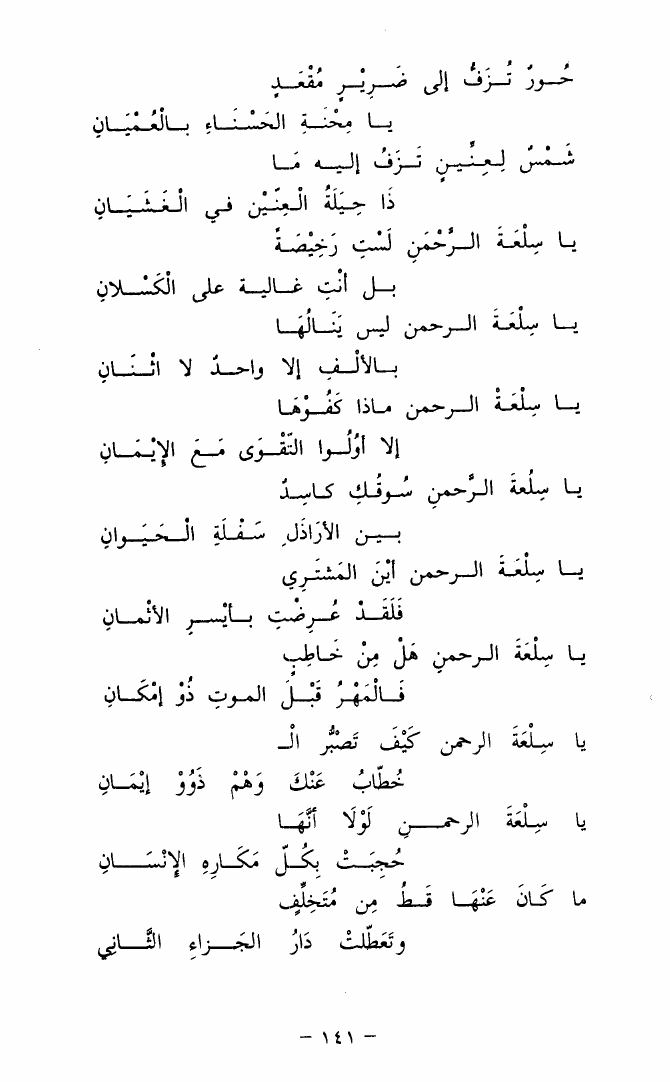 حُورٌ تُزَفُّ إلى ضَرِيْرٍ مُقْعَدٍ
يا مِحْنَةِ الحَسْنَاءِ بالْعُمْيَانِ
شَمْسٌ لِعِنِّينٍ تُزَفُّ إليه مَا
ذَا حِيلَةُ الْعِنِّيْنِ في الْغَشَيَانِ
يا سِلْعَةَ الرَّحْمَنِ لَسْتِ رَخِيْصَةً
بل أنْتِ غالية على الْكَسْلانِ
يا سِلْعَةَ الرحمن ليس يَنَالُهَا
بالألْفِ إلا واحدٌ لا اثْنَانِ
يا سِلْعَةْ الرحمن ماذا كَفُوْهَا
إلا أوُلُوا التَّقْوَى مَعَ الإِيْمَانِ
يا سِلُعةَ الرَّحمنِ سُوقُكِ كاسِدٌ
بين الأرَاذَلِ سَفْلَةِ الْحَيَوانِ
يا سِلْعَةَ الرحمن أيْنَ المَشْتَرِي
فَلَقَدْ عُرِضْتِ بأيْسرِ الأثْمانِ
يا سِلْعَةَ الرحمنِ هَلْ مِنْ خَاطِبٍ
فالْمَهْرُ قَبْلَ الموتِ ذُو إمْكَانِ
يا سِلْعَةَ الرحمن كَيْفَ تَصَبُّرُ الْـ
خُطّابُ عَنْكَ وَهْمْ ذَوُوْ إيْمَانِ
يا سِلْعَةَ الرحمنِ لَوْلَا أنَّهَا
حُجِبَتْ بِكُلّ مَكَارِهِ الإِنْسَانِ
ما كَانَ عَنْهَا قَطُ مِن مُتَخَلِّفٍ
وتَعَطّلتْ دَارُ الجَزاءِ الثَّانِي
– ١٤١ –